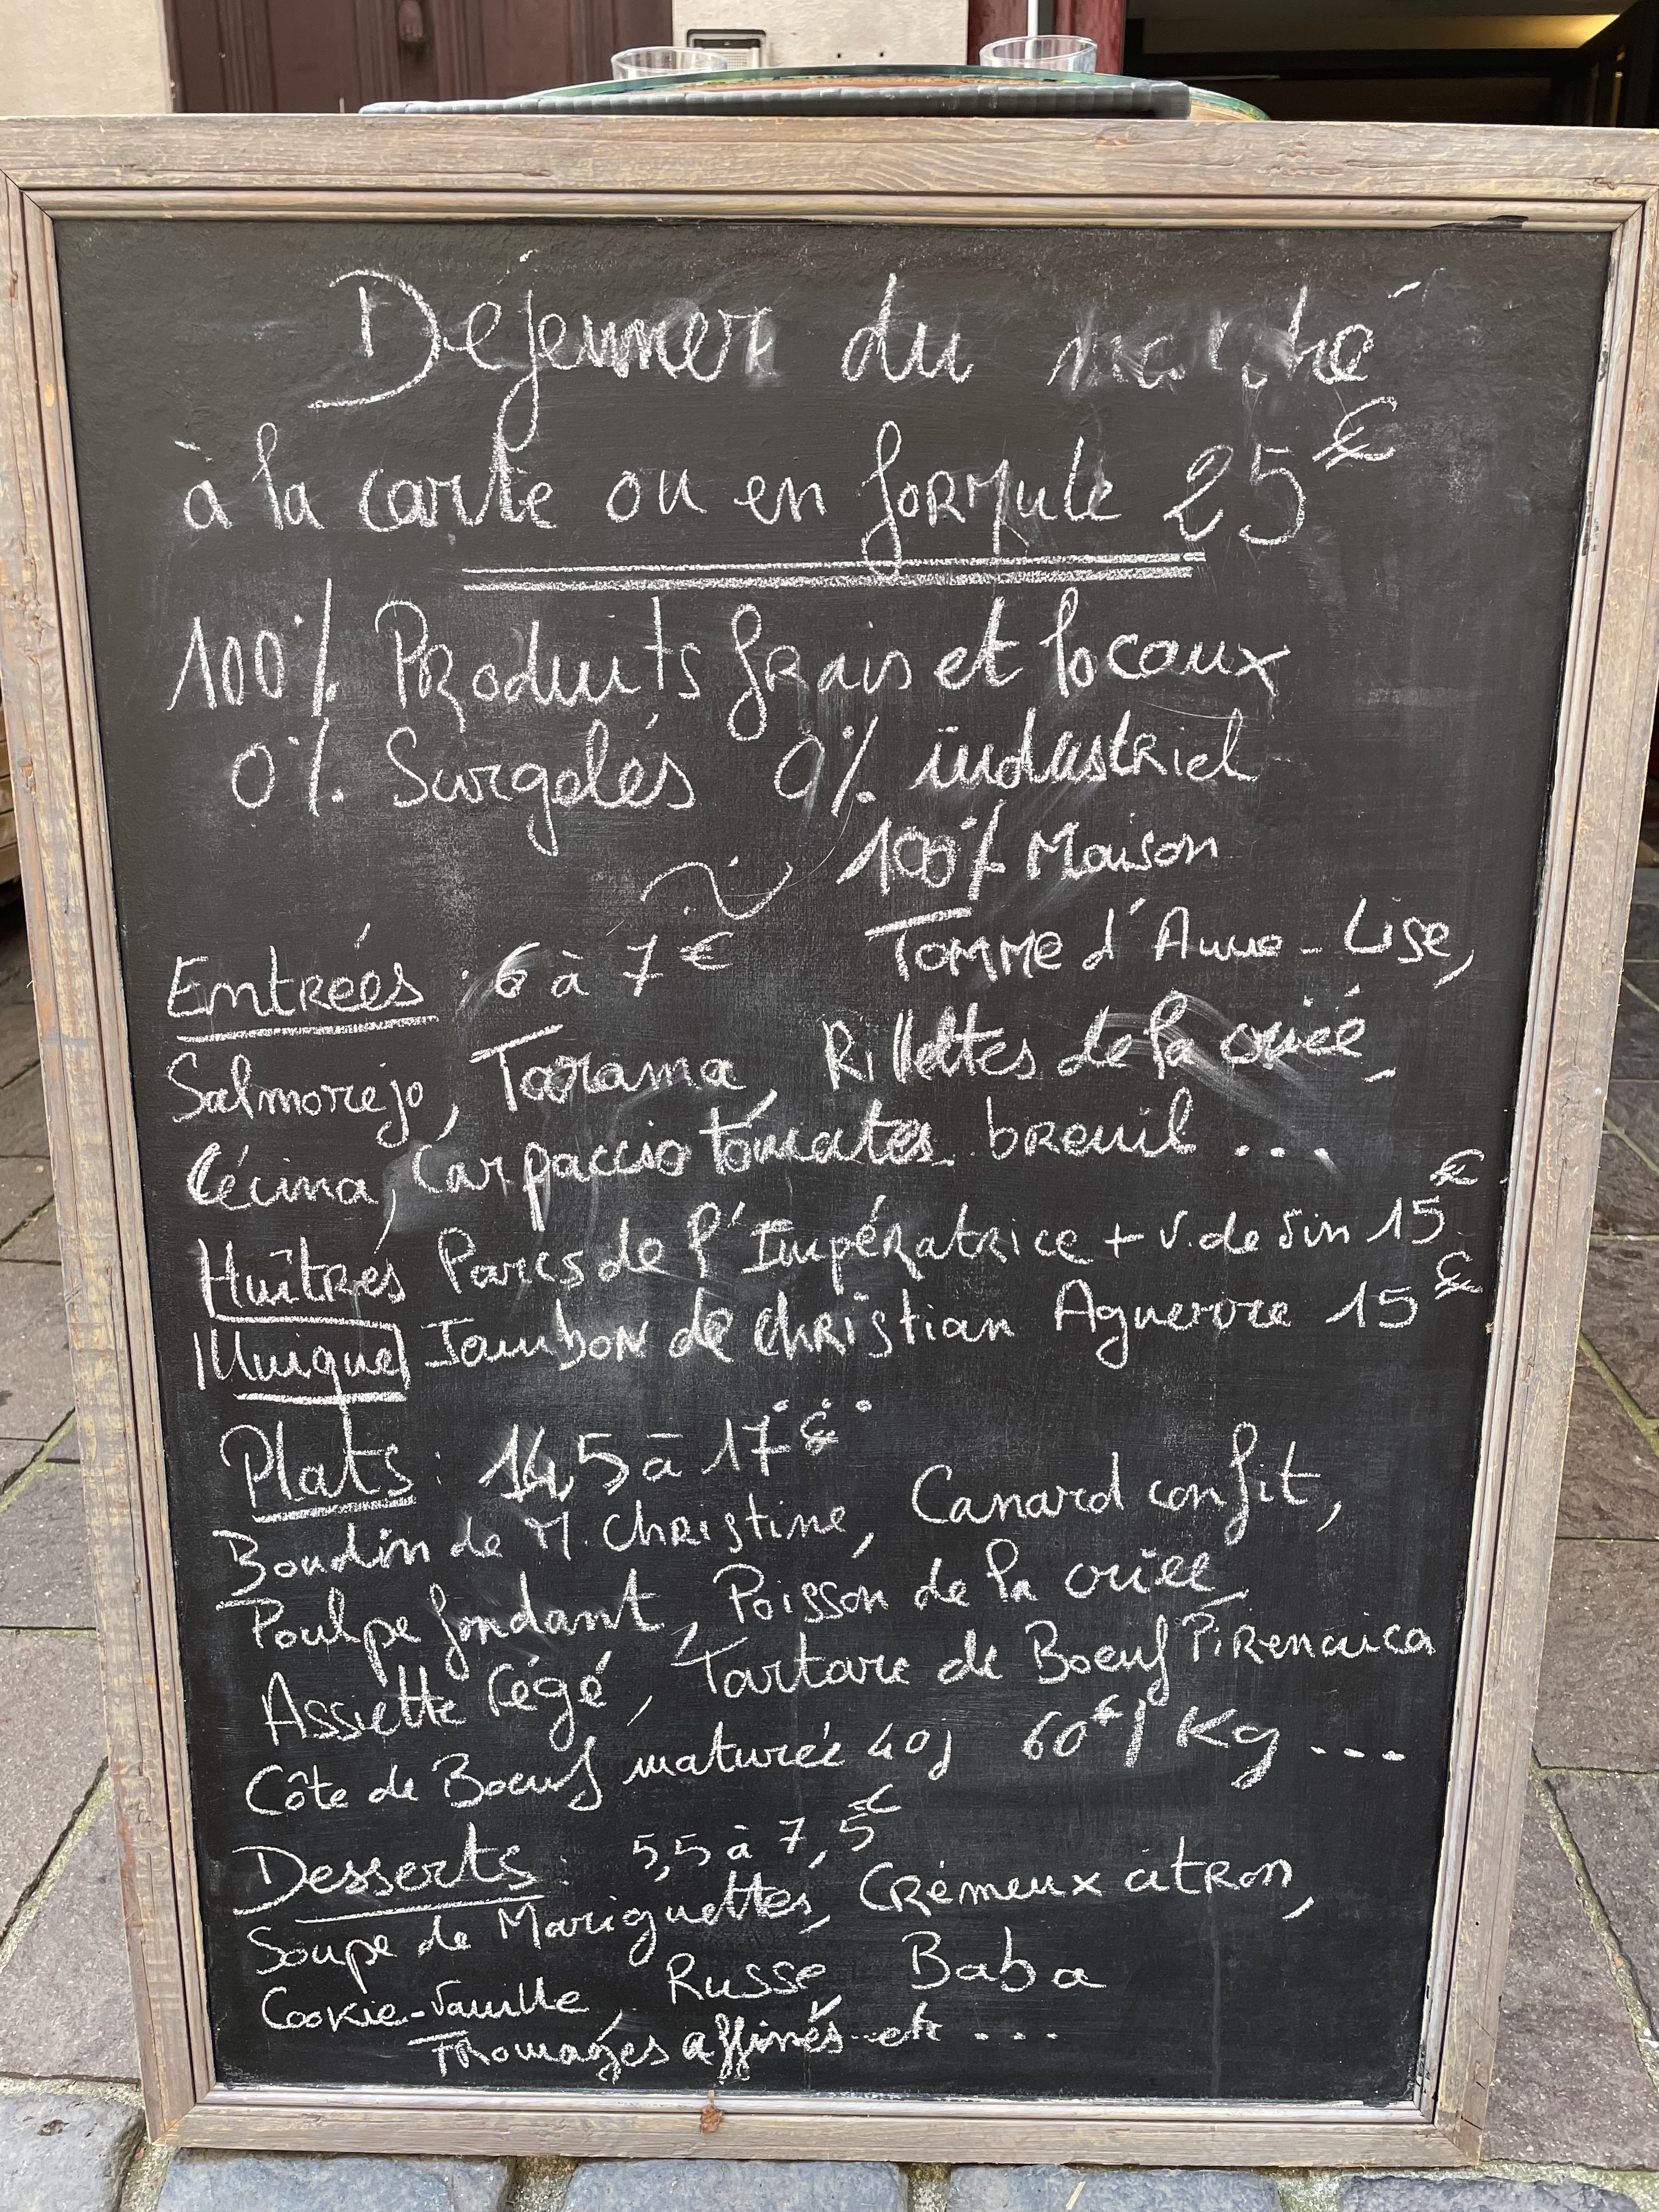 Déjeuner du marché
à la carte ou en formule 25€
100% Produits frais et locaux
0% Surgelés 0% industriel
100% Maison
Entrées : 6 à 7€ Tomme d'Anne-Lise,
Salmorejo, Tarama, Rillettes de la criée,
Cécina, Carpaccio tomates breuil ...
Huîtres Parcs de l'Impératrice + v. de vin 15€
Jambon de Christian Aguerre 15€
Plats : 14,5 à 17€
Boudin de M. Christine, Canard confit,
Poulpe fondant, Poisson de la criée,
Assiette végé, Tartare de Boeuf Pirenaica
Côte de Boeuf maturée 40j 60€/Kg ...
Desserts : 5,5 à 7,5€
Soupe de Mariguettes, Crémeux citron,
Cookie-vanille, Russe, Baba
Fromages affinés etc ....